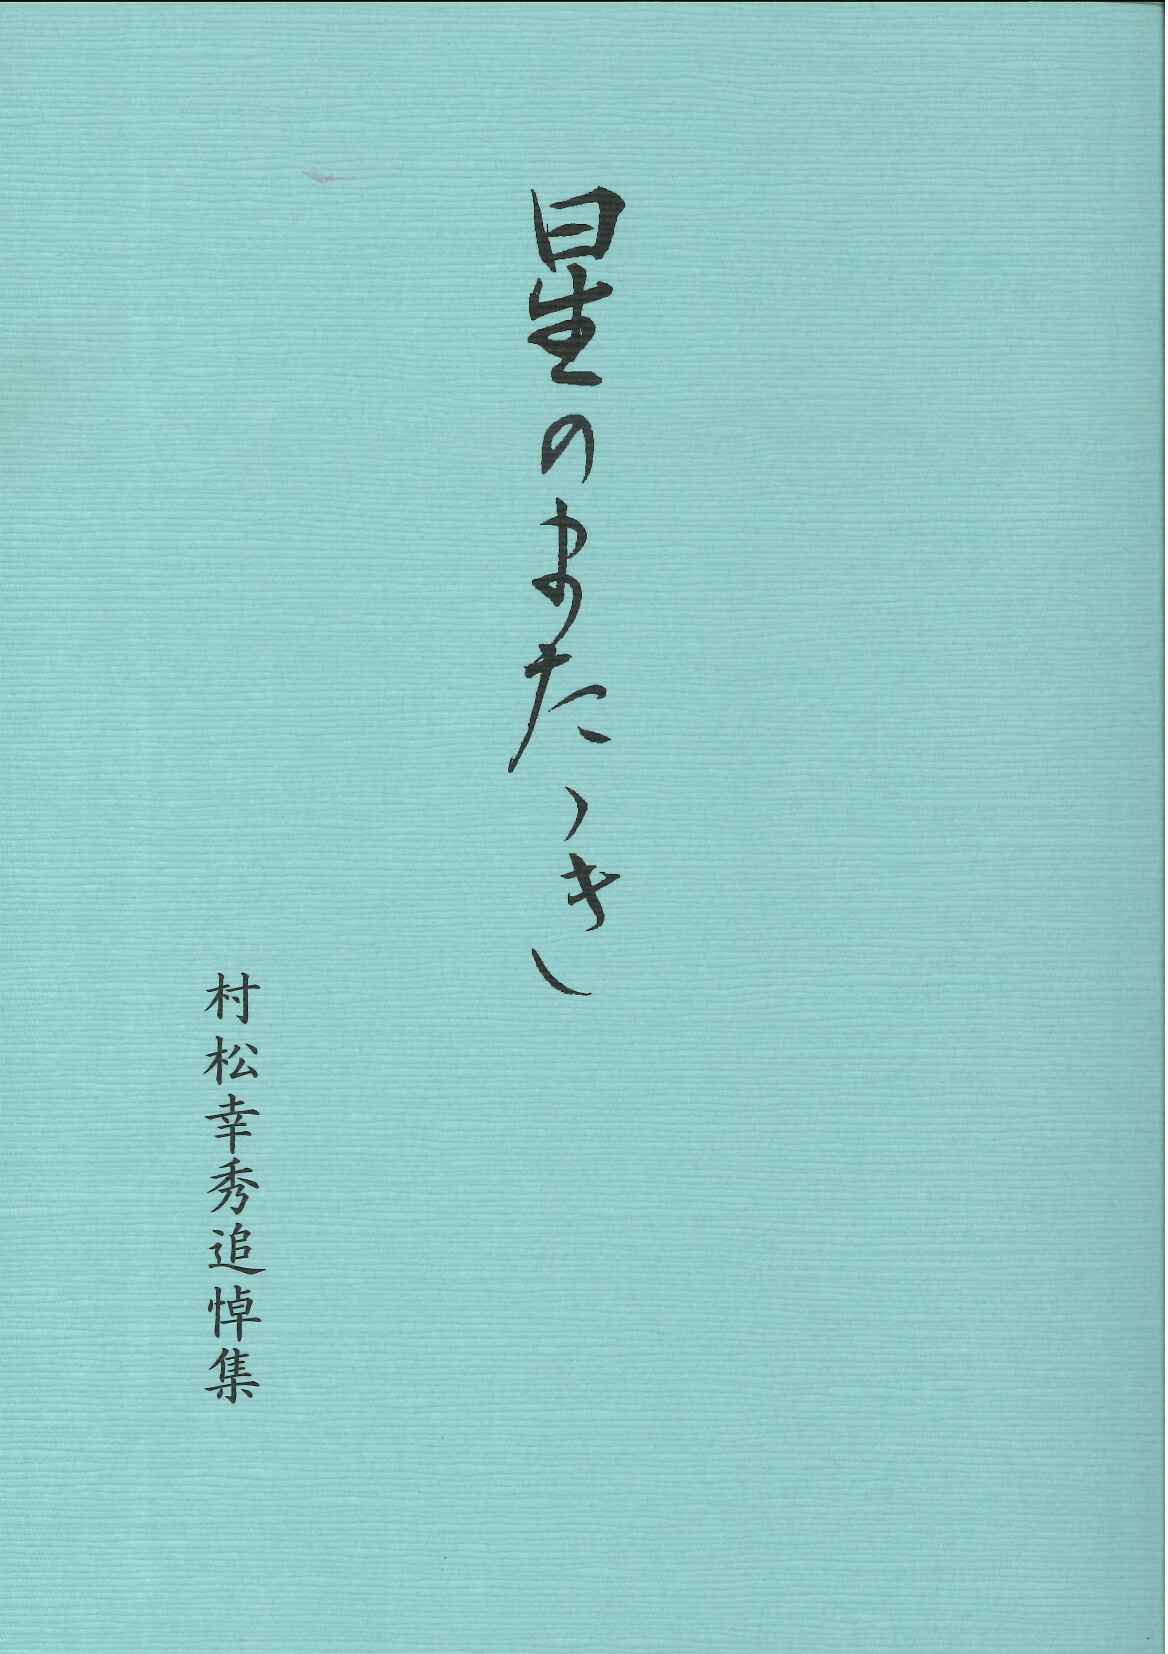 星のまたゝき
村松幸秀追悼集